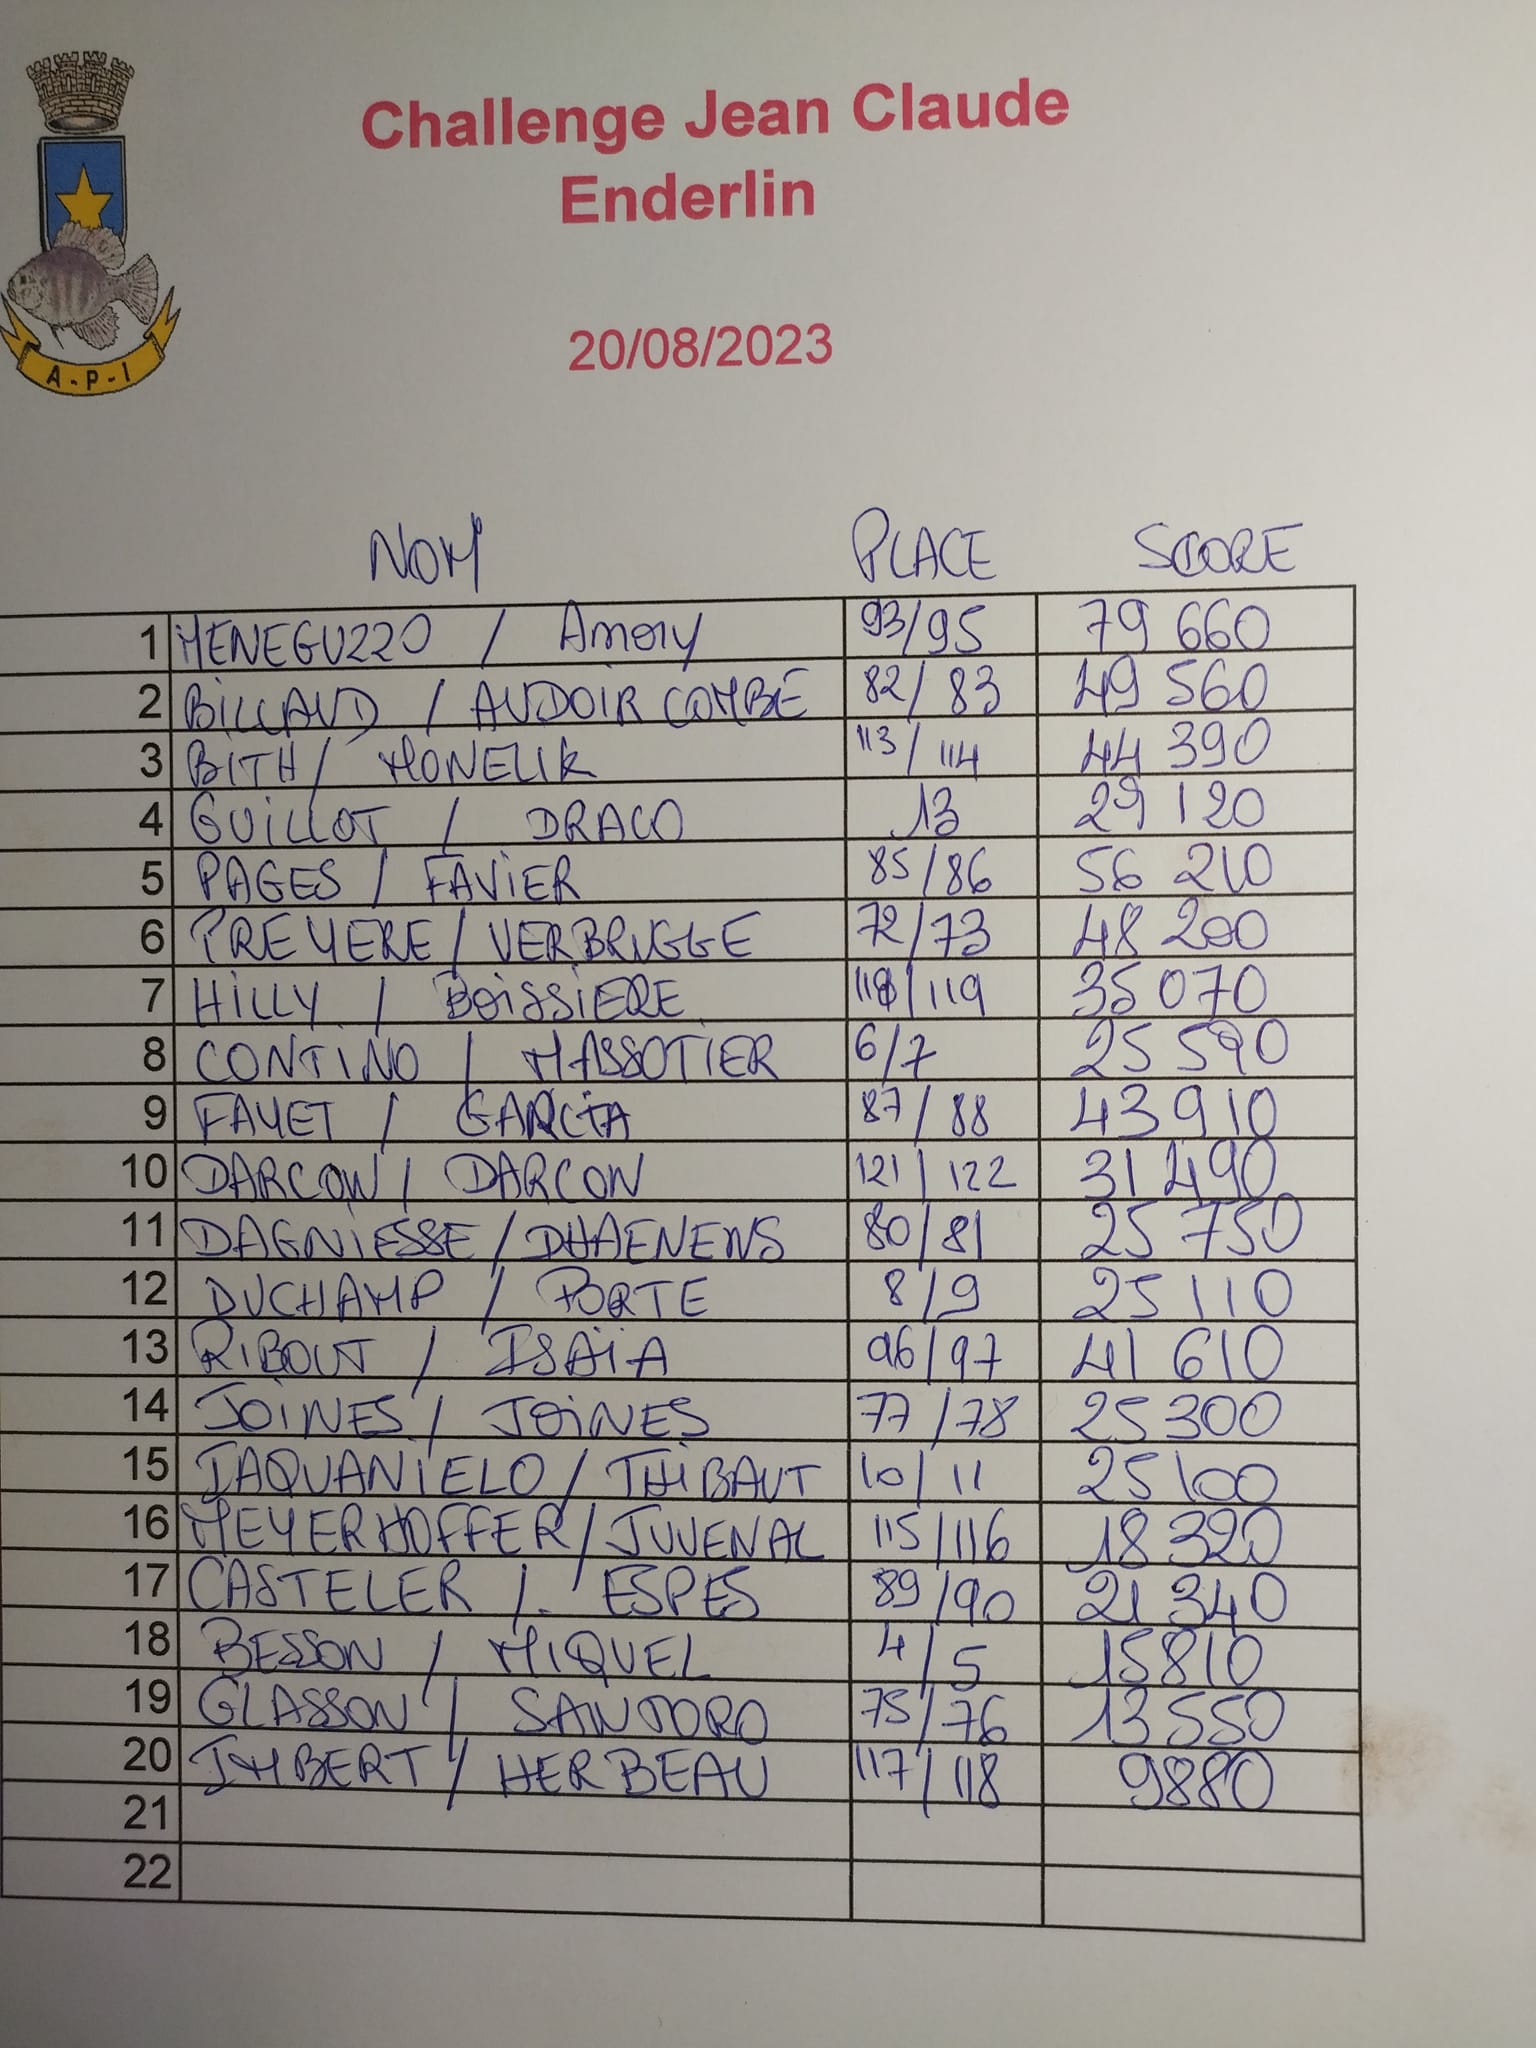 Challenge Jean Claude
Enderlin
20/08/2023
A-P-I
NOM PLACE SCORE
1 MENEGUZZO / Amory 93/95 79 660
2 BILLAUD / AUDOIR COMBE 82/83 49 560
3 BITH / MONELIK 113/114 44 390
4 GUILLOT / DRACO 13 29 120
5 PAGES / FAVIER 85/86 56 210
6 PREYERE / VERBRUGGE 72/73 48 200
7 HILLY / BOISSIERE 118/119 35 070
8 CONTINO / MASSOTIER 6/7 25 590
9 FAYET / GARCIA 87/88 43 910
10 DARCON / DARCON 121/122 31 490
11 DAGNIESSE / DHAENENS 80/81 25 750
12 DUCHAMP / PORTE 8/9 25 110
13 RIBOUT / ISAÏA 96/97 41 610
14 JOINES / JOINES 77/78 25 300
15 IAQUANIELO / THIBAUT 10/11 25 100
16 MEYERHOFFER / JUVENAL 115/116 18 320
17 CASTELER / ESPES 89/90 21 340
18 BESSON / MIQUEL 4/5 15810
19 GLASSON / SANDORO 75/76 13 550
20 IMBERT / HERBEAU 117/118 9880
21
22